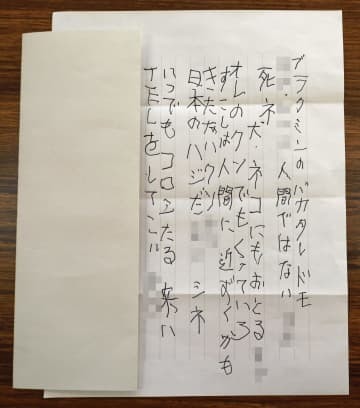 ブラクミンのバカタレドモ
人間ではない
死ネ 犬・ネコにもおとる
オレのクソでもくっていろ
すこしは人間に近ずくかも
きたない
日本のハジだ シネ
いつでもコロシたる 来い
をしてこい